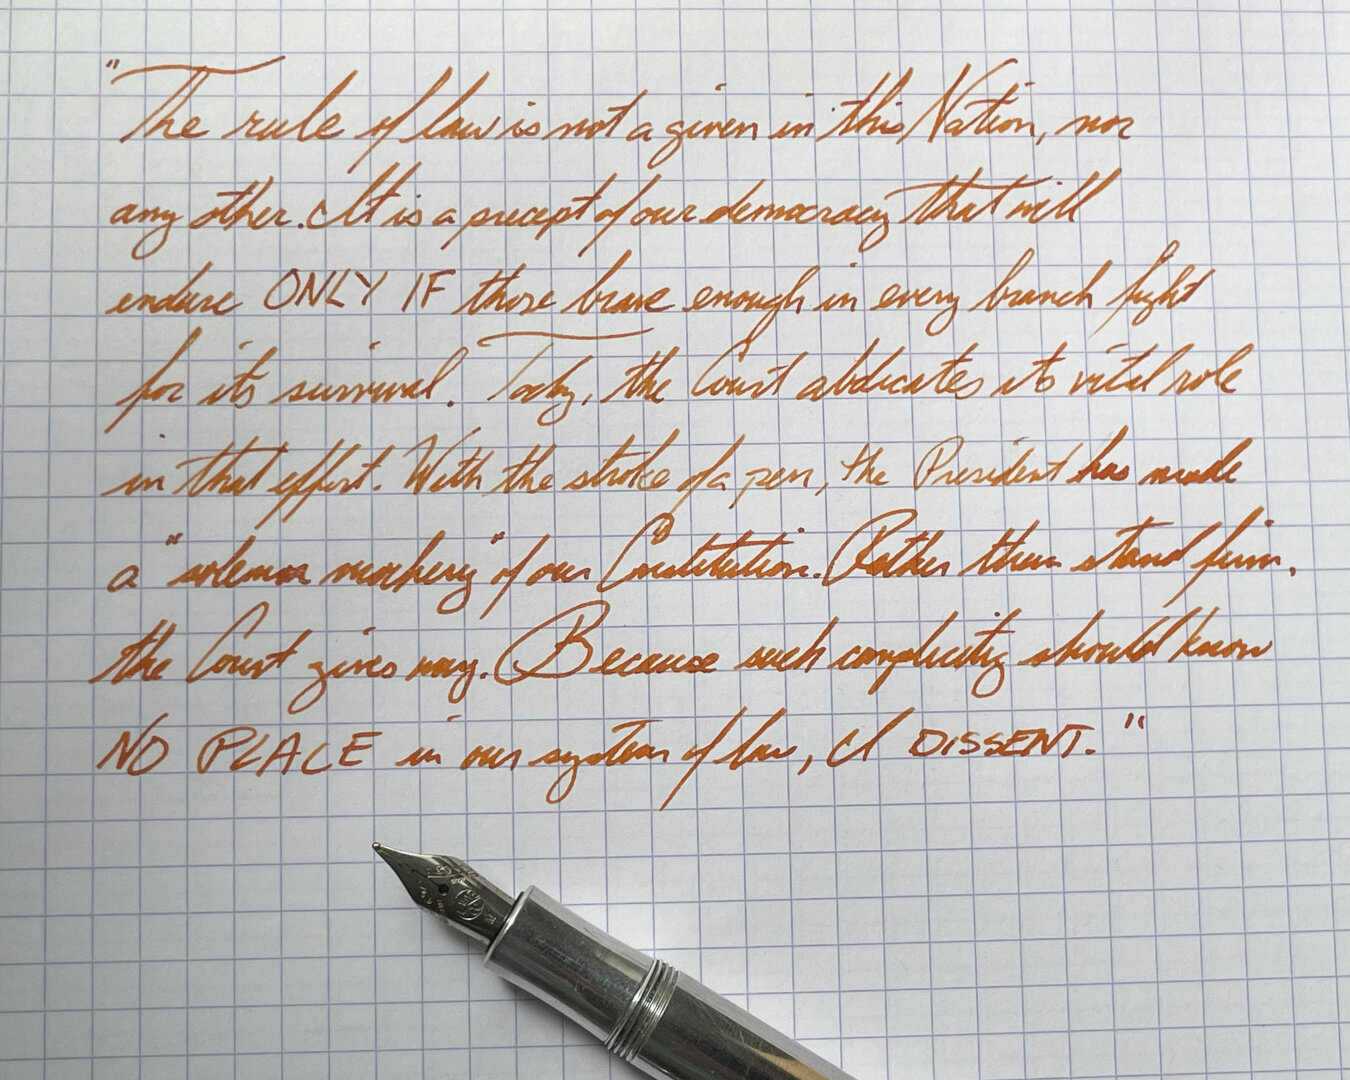 "The rule of law is not a given in this Nation, nor
any other. It is a precept of our democracy that will
endure ONLY IF those brave enough in every branch fight
for its survival. Today, the Court abdicates its vital role
in that effort. With the stroke of a pen, the President has made
a "solemn mockery" of our Constitution. Rather than stand firm,
the Court gives way. Because such complicity should know
NO PLACE in our system of law, I DISSENT."